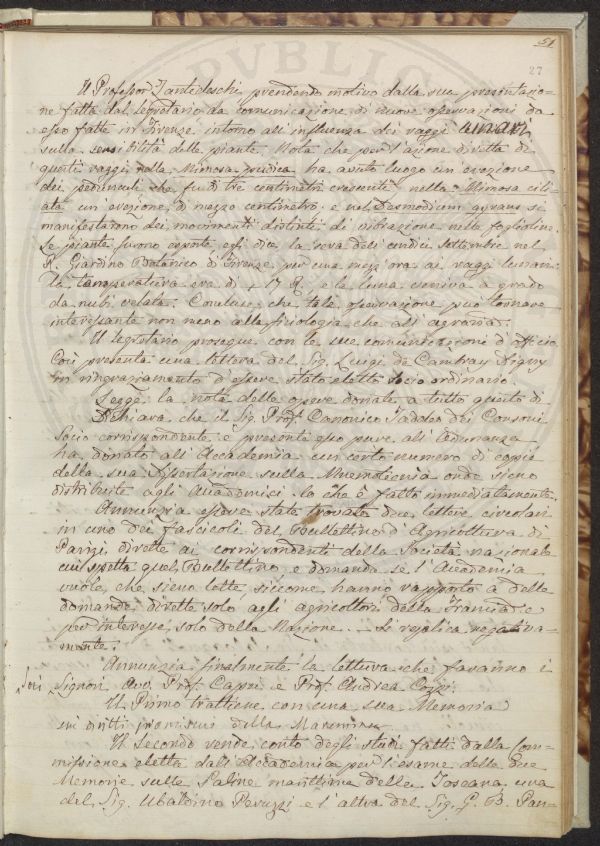 51
27
Il Professor Zantedeschi prendendo motivo dalla sua presentazio-
ne fatta dal segretario da comunicazione di nuove osservazioni da
esso fatte in Firenze intorno all'influenza dei raggi lunari
sulla sensibilità delle piante. Nota che per l'azione diretta di
questi raggi nella Mimosa pudica ha avuto luogo un erezione
dei peduncoli che fu di tre centimetri crescente nella Mimosa cili-
ata un'erezione di mezzo centimetro e nel Desmodium gyrans si
manifestarono dei movimenti distinti di vibrazione nelle foglioline.
Le piante furono esposte egli dice la sera delli undici Settembre nel
R. Giardino Botanico di Firenze per una mezz'ora ai raggi lunari
la temperatura era di + 17 R. e la luna veniva a grado
da nubi velata. Concluse che tale osservazione può tornare
interessante non meno alla fisiologia che all'agraria.
Il segretario prosegue con le sue comunicazioni d'officio
Così presenta una lettera del Sig. Luigi de Cambray Digny
in ringraziamento d'essere stato eletto socio ordinario.
Legge la nota delle opere donate a tutto questo dì
Dichiara che il Sig. Prof. Canonico Taddeo dei Consoni
Socio corrispondente e presente esso pure all'adunanza
ha donato all'Accademia un certo numero di copie
della sua Dissertazione sulla Mnemotecnia onde sieno
distribuite agli Accademici lo che è fatto immediatamente.
Annunzia essere state trovate due lettere circolari
in uno dei fascicoli del Bullettino d'Agricoltura di
Parigi dirette ai corrispondenti della Società nazionale
cui spetta quel Bullettino e domanda se l'Accademia
vuole che sieno lette, siccome hanno rapporto a delle
domande dirette solo agli agricoltori della Francia e
per interesse solo della Nazione. – Si replica negativa-
mente.
Annunzia finalmente la lettura che faranno i
Soci Signori Avv. Prof. Capei e Prof. Andrea Cozzi.
Il Primo trattiene con una sua Memoria
sui diritti promiscui della Maremma
Il secondo rende conto degli studi fatti dalla Com-
missione eletta dall'Accademia per l'esame delle due
Memorie sulle Saline marittime della Toscana una
del Sig. Ubaldino Peruzzi e l'altra del Sig. G. B. Pan-